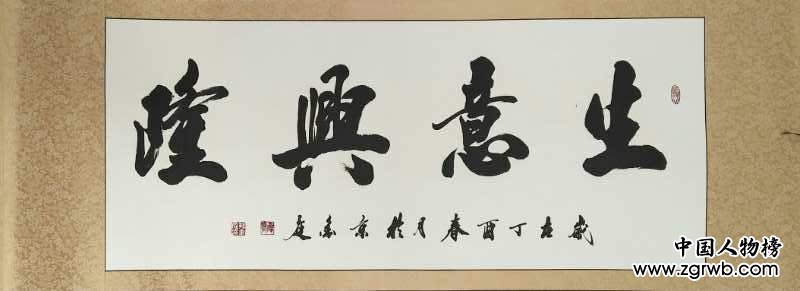 生意興隆
歲在丁酉春月於京
中国人物榜
www.zgrwb.com